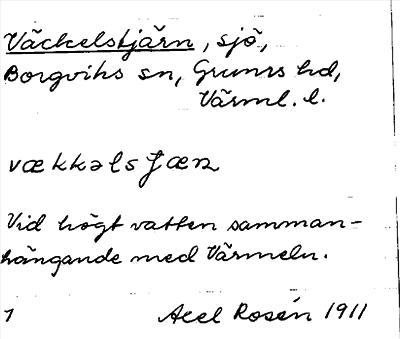 Väckelstjärn, sjö,
Borgviks sn, Grums hd,
Värml. l.
vækkəlsʃæɳ
Vid högt vatten samman-
hängande med Värmeln.
1 Axel Rosén 1911